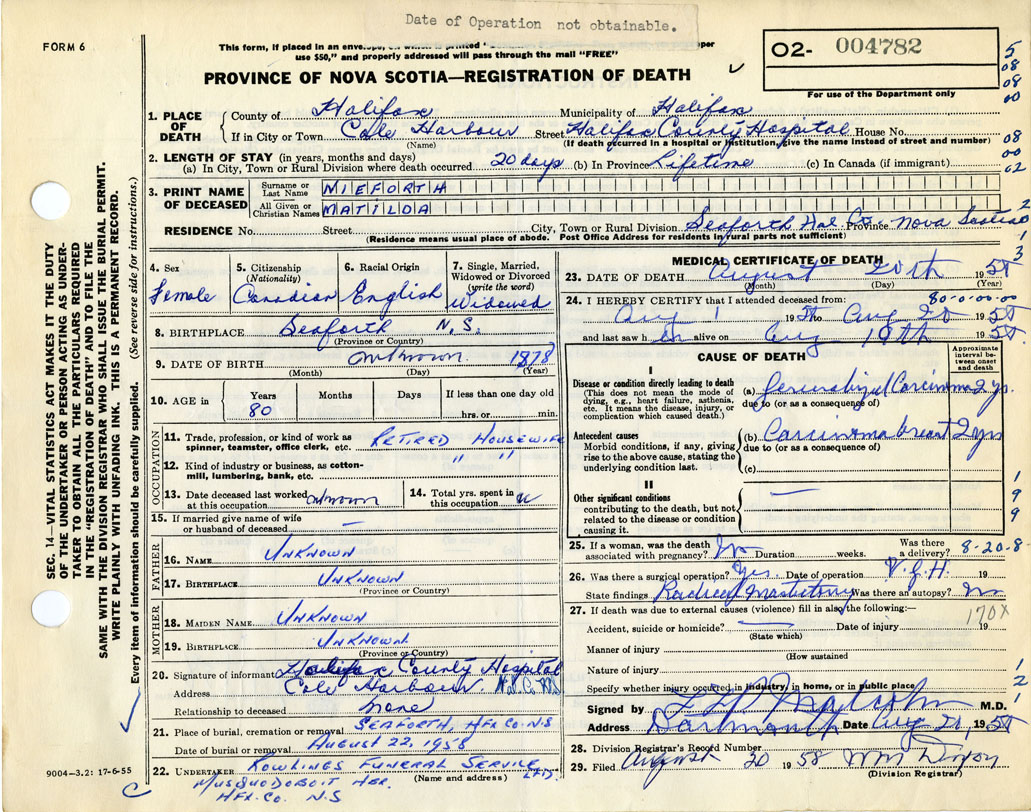 Date of Operation not obtainable.
FORM 6
This form, if placed in an envelope, on which is printed
per
use $50," and properly addressed will pass through the mail "FREE"
O2- 004782
For use of the Department only
PROVINCE OF NOVA SCOTIA—REGISTRATION OF DEATH
1. PLACE OF DEATH
County of Halifax Municipality of Halifax
If in City or Town Cole Harbour Street Halifax County Hospital House No.
(Name) (If death occurred in a hospital or institution, give the name instead of street and number)
2. LENGTH OF STAY (in years, months and days)
(a) In City, Town or Rural Division where death occurred 20 days (b) In Province Lifetime (c) In Canada (if immigrant)
3. PRINT NAME OF DECEASED
Surname or Last Name NIEFORTH
All Given or Christian Names MATILDA
RESIDENCE No. Street City, Town or Rural Division Seaforth Hal. Co. Province Nova Scotia
(Residence means usual place of abode. Post Office Address for residents in rural parts not sufficient)
4. Sex
Female
5. Citizenship
(Nationality)
Canadian
6. Racial Origin
English
7. Single, Married, Widowed or Divorced
(write the word)
Widowed
8. BIRTHPLACE Seaforth N.S.
(Province or Country)
9. DATE OF BIRTH unknown 1878
(Month) (Day) (Year)
10. AGE in
Years Months Days If less than one day old
80 hrs. or min.
OCCUPATION
11. Trade, profession, or kind of work as spinner, teamster, office clerk, etc. RETIRED HOUSEWIFE
12. Kind of industry or business, as cotton-mill, lumbering, bank, etc. " "
13. Date deceased last worked at this occupation unknown
14. Total yrs. spent in this occupation u
15. If married give name of wife or husband of deceased —
FATHER
16. NAME UNKNOWN
17. BIRTHPLACE UNKNOWN
(Province or Country)
MOTHER
18. MAIDEN NAME UNKNOWN
19. BIRTHPLACE UNKNOWN
(Province or Country)
20. Signature of informant Halifax County Hospital
Address Cole Harbour
Relationship to deceased none
21. Place of burial, cremation or removal SEAFORTH, HFX CO. N.S
Date of burial or removal AUGUST 22, 1958
22. UNDERTAKER ROWLINGS FUNERAL SERVICE LTD.
(Name and address)
MUSQUODOBOIT HBR.
HFX. CO. N.S
MEDICAL CERTIFICATE OF DEATH
23. DATE OF DEATH August 20th 1958
(Month) (Day) (Year)
24. I HEREBY CERTIFY that I attended deceased from:
Aug 1 1958 to Aug 20 1958
and last saw h er alive on Aug 19th 1958
CAUSE OF DEATH
Approximate interval between onset and death
I
Disease or condition directly leading to death
(This does not mean the mode of dying, e.g., heart failure, asthenia, etc. It means the disease, injury, or complication which caused death.)
(a) Generalized Carcinoma 2 yrs
due to (or as a consequence of)
Antecedent causes
Morbid conditions, if any, giving rise to the above cause, stating the underlying condition last.
(b) Carcinoma breast 2 yrs
due to (or as a consequence of)
(c)
II
Other significant conditions
contributing to the death, but not related to the disease or condition causing it.
—
25. If a woman, was the death associated with pregnancy? No Duration weeks. Was there a delivery? 8-20-8-
26. Was there a surgical operation? Yes. Date of operation V.G.H. 19
State findings Radical Mastectomy Was there an autopsy? No
27. If death was due to external causes (violence) fill in also the following:—
170X
Accident, suicide or homicide? — Date of injury 19
(State which)
Manner of injury
(How sustained
Nature of injury
Specify whether injury occurred in industry, in home, or in public place
Signed by Malcolm M.D.
Address Dartmouth Date Aug 21, 1958
28. Division Registrar's Record Number
29. Filed August 20 1958 Wm
(Division Registrar)
SEC. 14—VITAL STATISTICS ACT MAKES IT THE DUTY
OF THE UNDERTAKER OR PERSON ACTING AS UNDER-
TAKER TO OBTAIN ALL THE PARTICULARS REQUIRED
IN THE "REGISTRATION OF DEATH" AND TO FILE THE
SAME WITH THE DIVISION REGISTRAR WHO SHALL ISSUE THE BURIAL PERMIT.
WRITE PLAINLY WITH UNFADING INK. THIS IS A PERMANENT RECORD.
Every item of information should be carefully supplied. (See reverse side for instructions.)
9004-3.2: 17-6-55